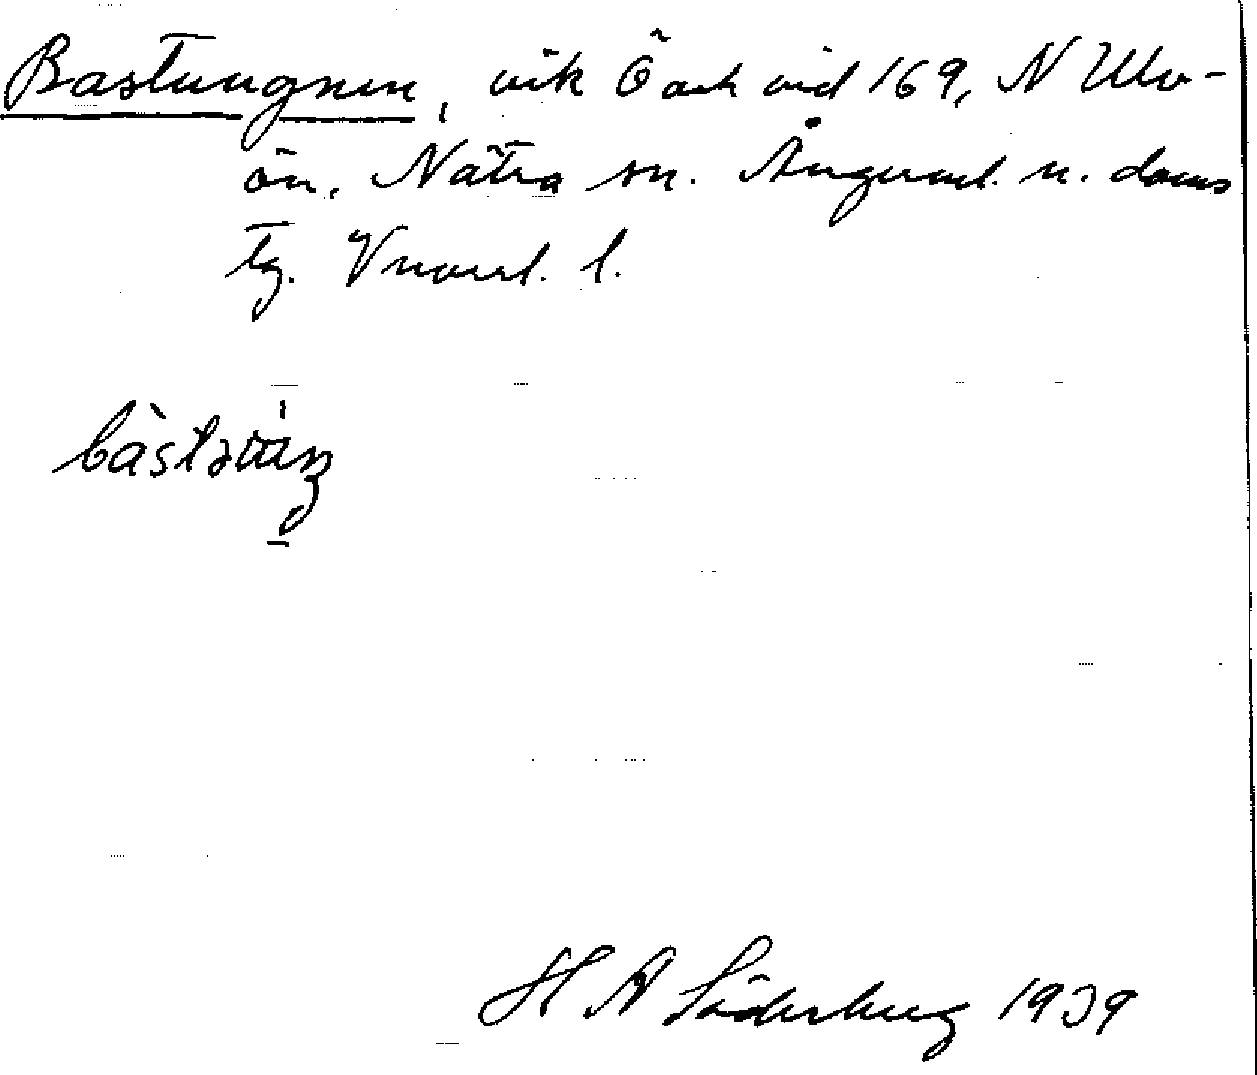 Bastungnen, vik Ö och vid 169, N Ulv-
ön, Nätra sn. Ångerml. n. doms
tg. Vnorrl. l.
H A Söderberg 1939